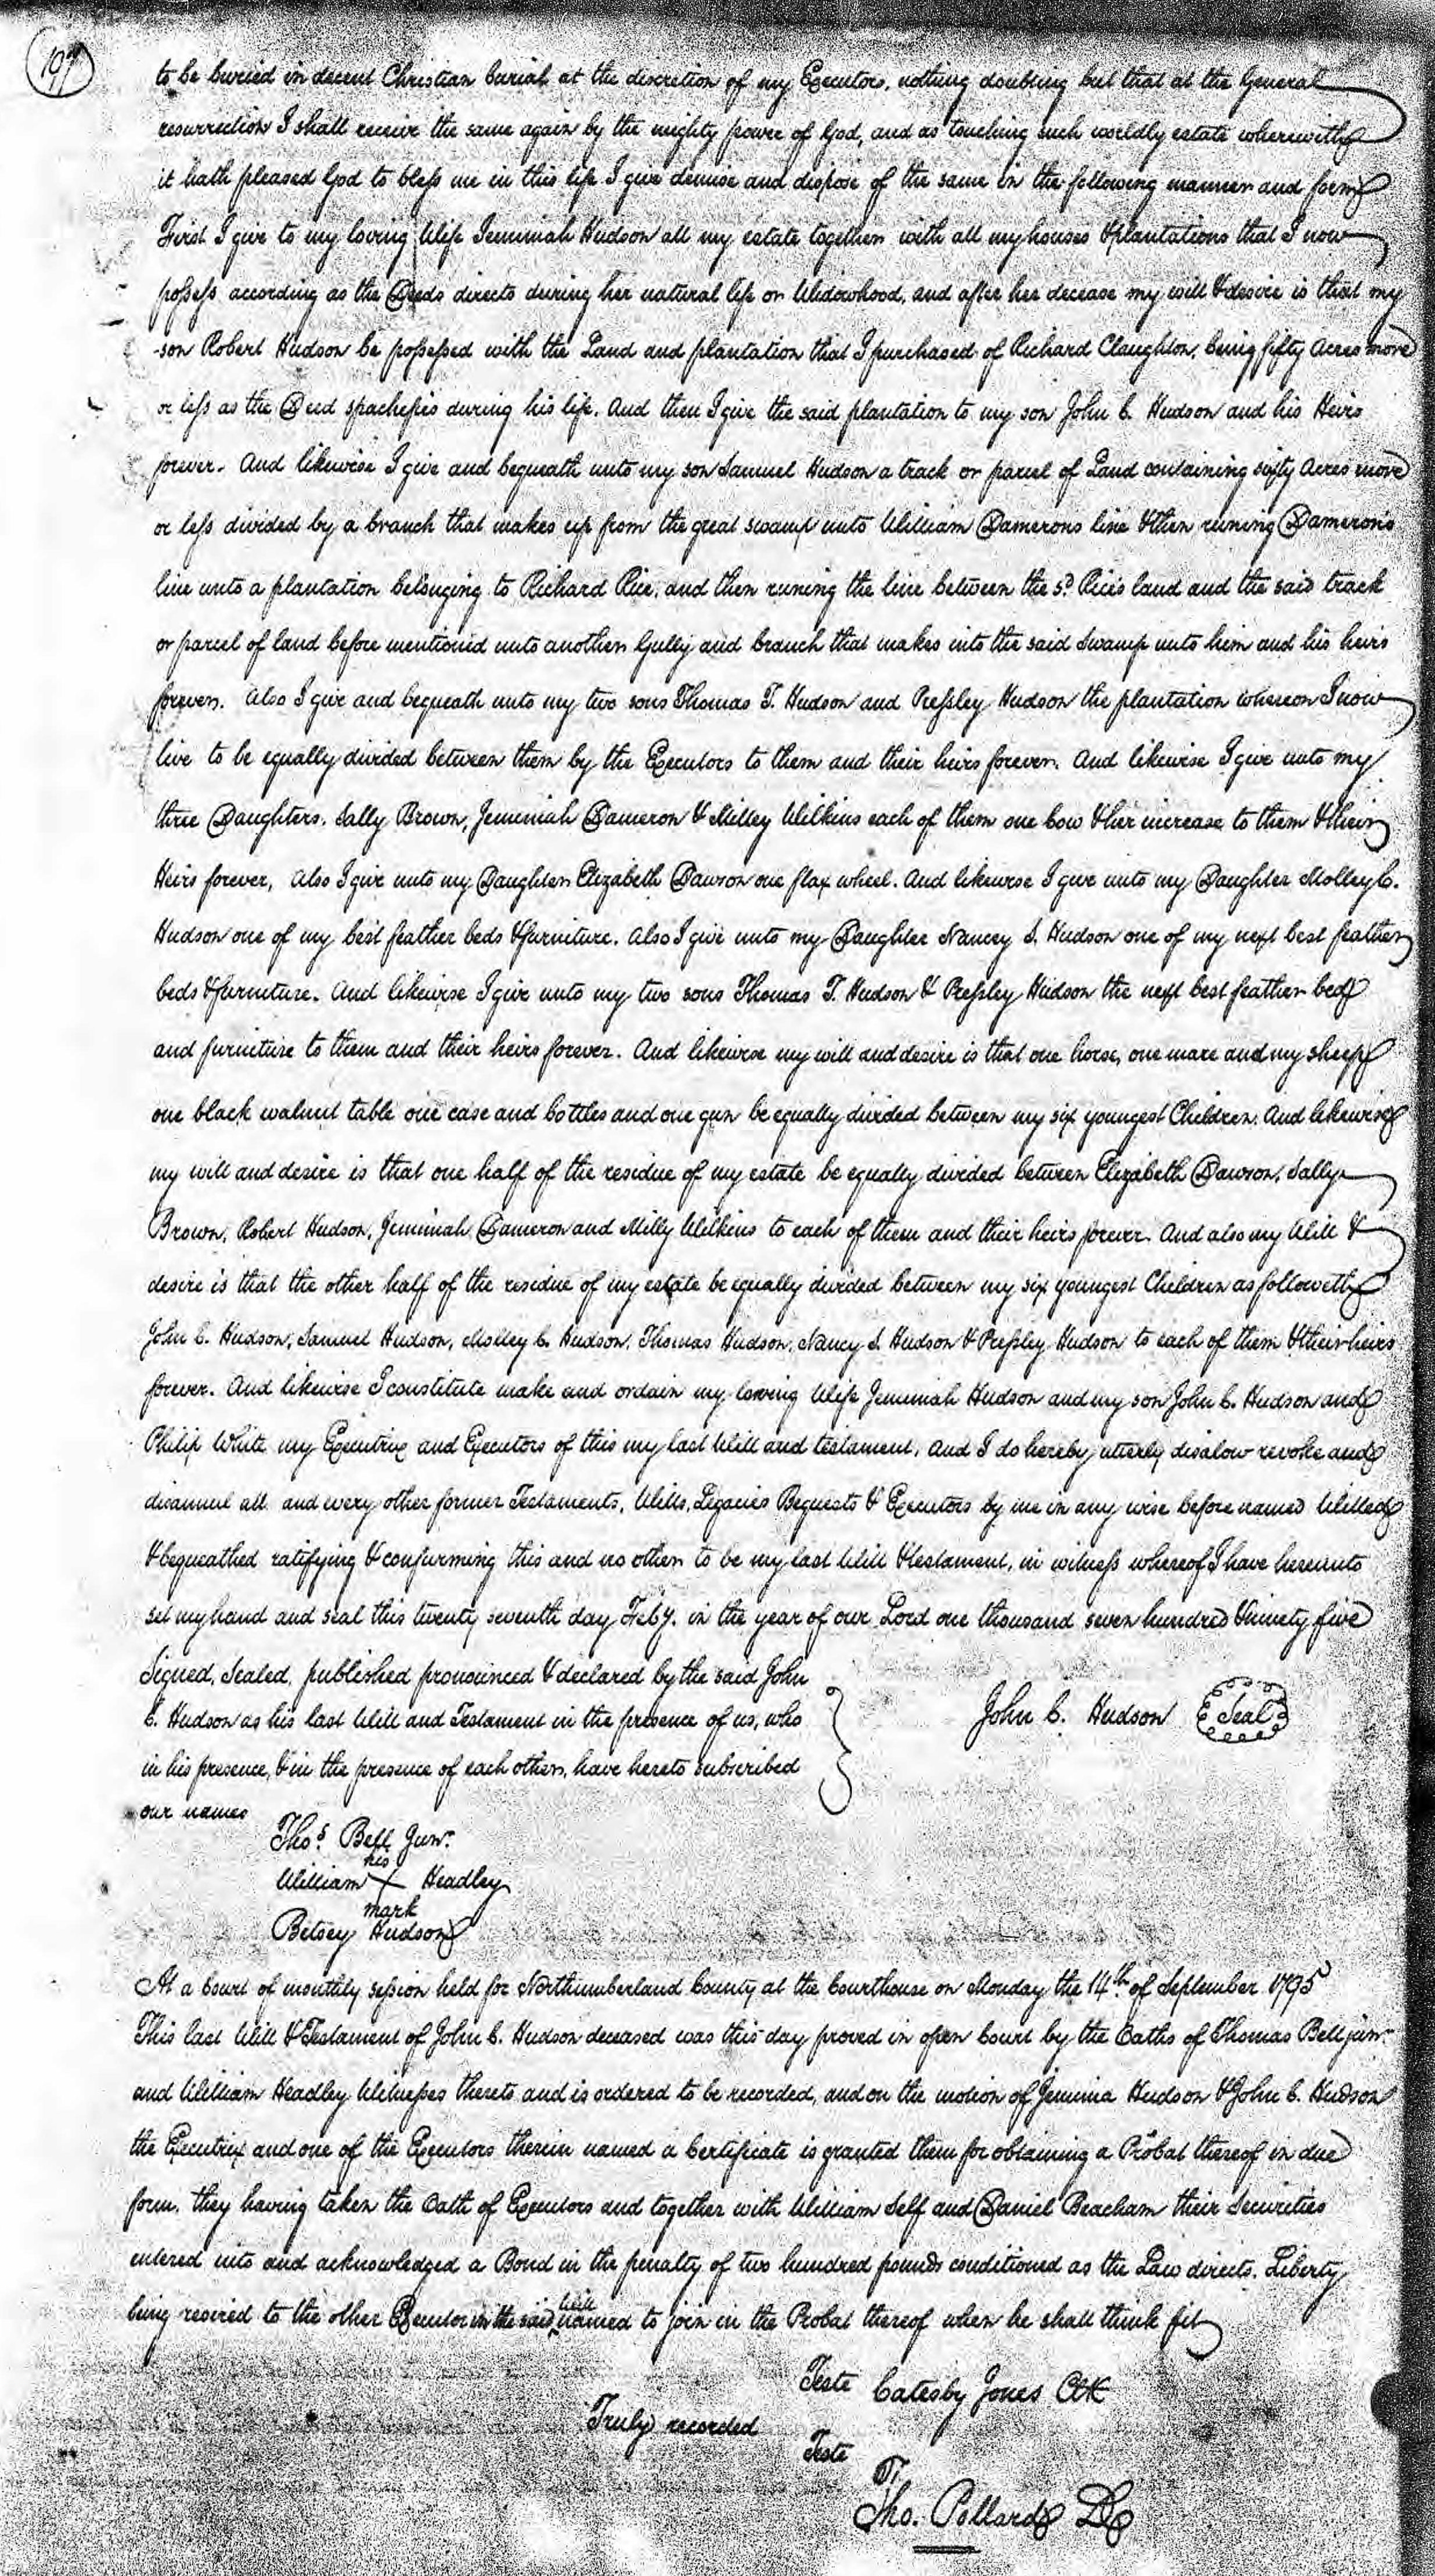 197
to be buried in decent Christian burial at the discretion of my Executors, nothing doubting but that at the General
resurrection I shall receive the same again by the mighty power of God, and as touching such worldly estate wherewith
it hath pleased God to bless me in this life I give demise and dispose of the same in the following manner and form
First I give to my loving Wife Jemimiah Hudson all my estate together with all my houses & plantations that I now
possess according as the Deeds directs during her natural life or Widowhood, and after her decease my will & desire is that my
son Robert Hudson be possessed with the Land and plantation that I purchased of Richard Claughton, being fifty Acres more
or less as the Deed spachefies during his life. And then I give the said plantation to my son John C. Hudson and his Heirs
forever. And likewise I give and bequeath unto my son Samuel Hudson a track or parcel of Land containing sixty Acres more
or less divided by a branch that makes up from the great swamp unto William Damerons line & then runing Damerons
line unto a plantation belonging to Richard Rice, and then runing the line between the sd. Rices land and the said track
or parcel of land before mentioned unto another Gully and branch that makes into the said Swamp unto him and his heirs
forever. Also I give and bequeath unto my two sons Thomas T. Hudson and Pressley Hudson the plantation whereon I now
live to be equally divided between them by the Executors to them and their heirs forever. And likewise I give unto my
three Daughters. Sally Brown, Jemimiah Dameron & Milley Wilkins each of them one Cow & her increase to them & their
Heirs forever, Also I give unto my Daughter Elizabeth Dawson one flax wheel. And likewise I give unto my Daughter Molley C.
Hudson one of my best feather beds & furniture. Also I give unto my Daughter Nancey S. Hudson one of my next best feather
beds & furniture. And likewise I give unto my two sons Thomas T. Hudson & Pressley Hudson the next best feather bed
and furniture to them and their heirs forever. And likewise my will and desire is that one horse, one mare and my sheep
one black walnut table one case and bottles and one gun be equally divided between my six youngest Children. And likewise
my will and desire is that one half of the residue of my estate be equally divided between Elizabeth Dawson, Sally
Brown, Robert Hudson, Jemimiah Dameron and Milly Wilkins to each of them and their heirs forever. And also my Will &
desire is that the other half of the residue of my estate be equally divided between my six youngest Children as followeth
John C. Hudson, Samuel Hudson, Molley C. Hudson, Thomas Hudson, Nancy S. Hudson & Pressley Hudson to each of them & their heirs
forever. And likewise I constitute make and ordain my loving Wife Jemimiah Hudson and my son John C. Hudson and
Philip White my Executrix and Executors of this my last Will and testament, and I do hereby utterly disalow revoke and
disannul all and every other former Testaments, Wills, Legacies Bequests & Executors by me in any wise before named Willed
& bequeathed ratifying & confurming this and no other to be my last Will & testament, in witness whereof I have hereunto
set my hand and seal this twenty seventh day Feby. in the year of our Lord one thousand seven hundred & ninety five
Signed, Sealed, published pronounced & declared by the said John
C. Hudson as his last Will and Testament in the presence of us, who
in his presence, & in the presence of each other, have hereto subscribed
our names
John C. Hudson Seal
Thos. Bell Junr.
his
William X Headley
mark
Betsey Hudson
At a Court of monthly session held for Northumberland County at the Courthouse on Monday the 14th of September 1795
This last Will & Testament of John C. Hudson deceased was this day proved in open Court by the Oaths of Thomas Bell junr.
and William Headley Witnesses thereto and is ordered to be recorded, and on the motion of Jemima Hudson & John C. Hudson
the Executrix and one of the Executors therein named a Certificate is granted them for obtaining a Probat thereof in due
form. they having taken the Oath of Executors and together with William Self and Daniel Beacham their Securities
entered into and acknowledged a Bond in the penalty of two hundred pounds conditioned as the Law directs. Liberty
being resired to the other Executor in the said will named to join in the Probat thereof when he shall think fit
Teste Catesby Jones Clk
Truly recorded
Teste
Tho. Pollard DC